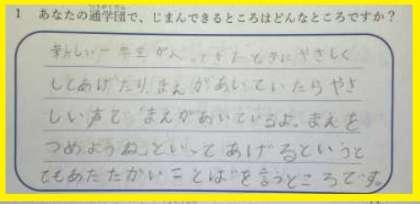 1 あなたの通学団で、じまんできるところはどんなところですか？
新しい一年生がはいってきたときにやさしく
してあげたり、まえがあいていたらやさ
しい声で「まえがあいているよ。まえを
つめようね」といってあげるというと
てもあたたかいことばを言うところです。